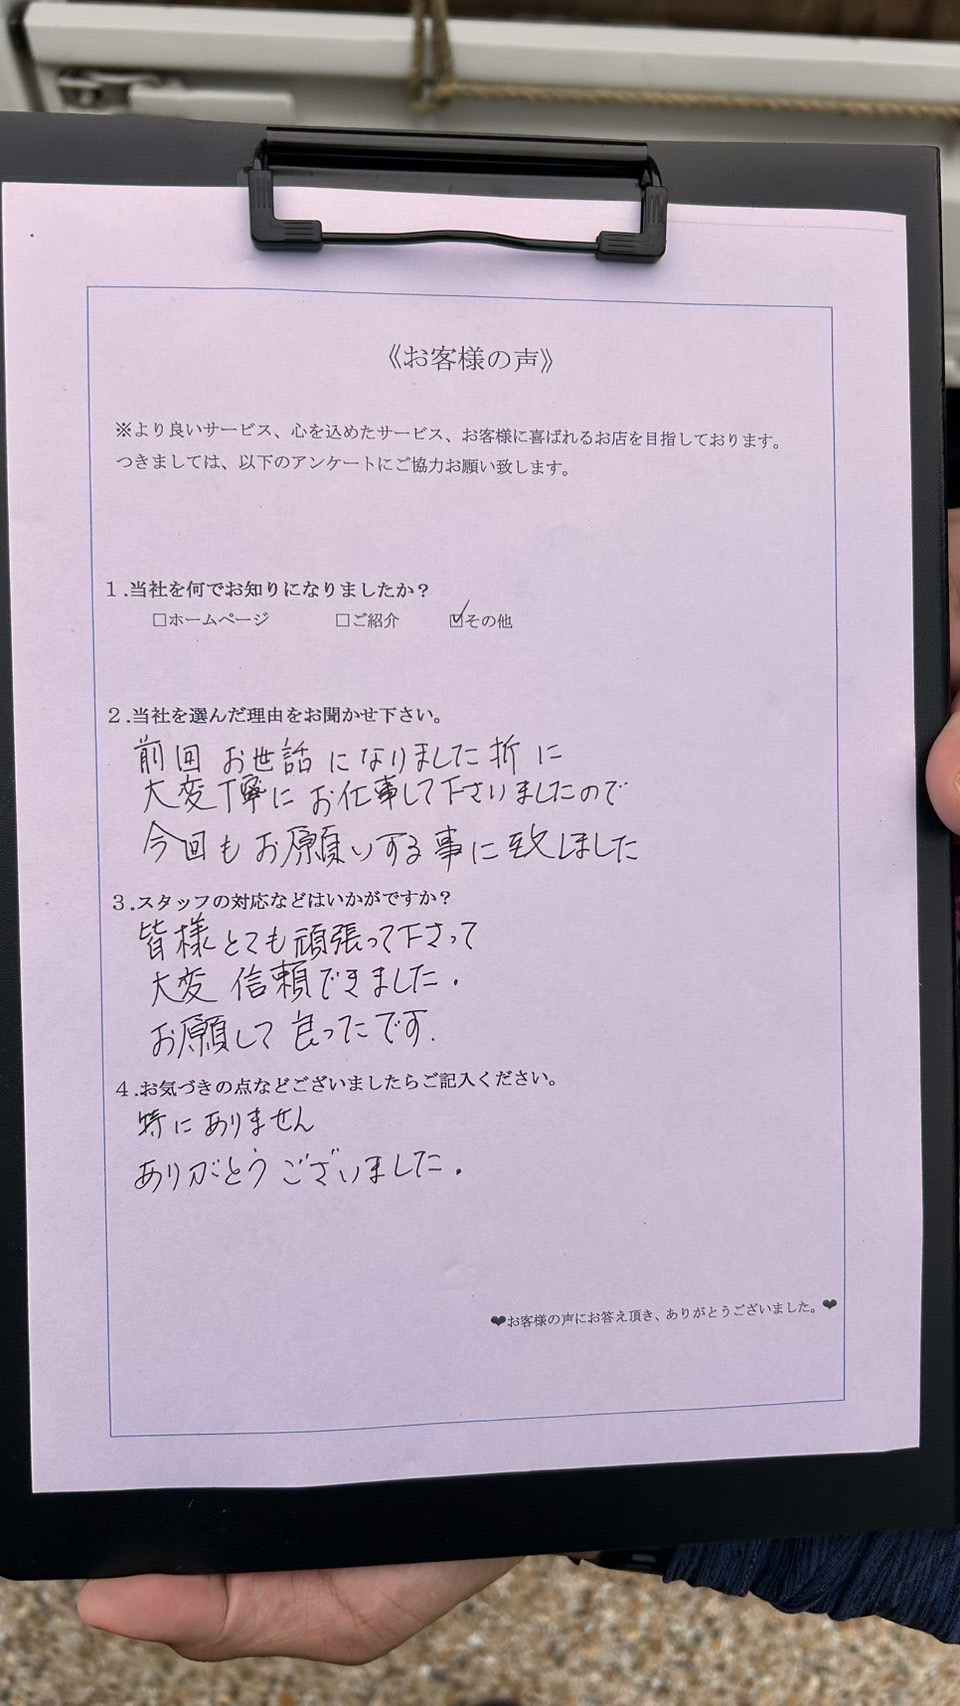 《お客様の声》
※より良いサービス、心を込めたサービス、お客様に喜ばれるお店を目指しております。
つきましては、以下のアンケートにご協力お願い致します。
1.当社を何でお知りになりましたか？
□ホームページ □ご紹介 ☑その他
2.当社を選んだ理由をお聞かせ下さい。
前回 お世話 になりました折 に
大変丁寧に お仕事して下さいましたので
今回も お願いする事に致しました
3.スタッフの対応などはいかがですか？
皆様とても頑張って下さって
大変 信頼できました.
お願して 良ったです.
4.お気づきの点などございましたらご記入ください。
特に ありません
ありがとう ございました.
❤お客様の声にお答え頂き、ありがとうございました。❤